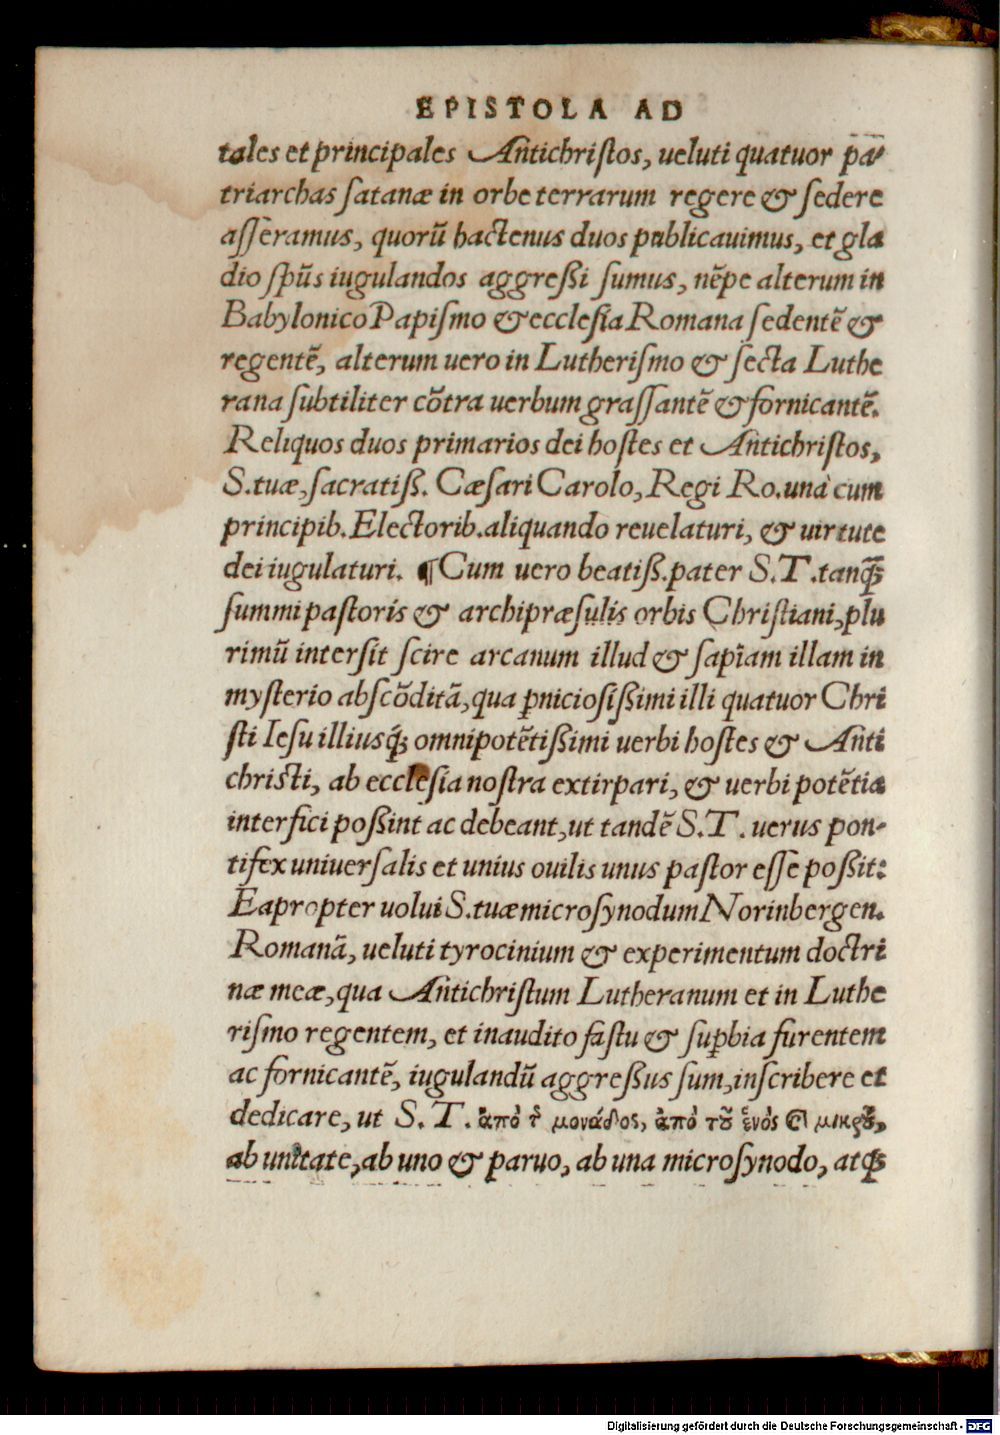 EPISTOLA AD
tales et principales Antichriſtos, ueluti quatuor pa-
triarchas ſatanæ in orbe terrarum regere & ſedere
aſſeramus, quorū hactenus duos publicauimus, et gla
dio ſpūs iugulandos aggreßi ſumus, nēpe alterum in
Babylonico Papiſmo & eccleſia Romana ſedentē &
regentē, alterum uero in Lutheriſmo & ſecta Luthe
rana ſubtiliter cōtra uerbum graſſantē & fornicantē.
Reliquos duos primarios dei hoſtes et Antichriſtos,
S. tuæ, ſacratiß. Cæſari Carolo, Regi Ro. unà cum
principib. Electorib. aliquando reuelaturi, & uirtute
dei iugulaturi. ¶ Cum uero beatiß. pater S. T. tanq̃ꝫ
ſummi paſtoris & archipræſulis orbis Chriſtiani, plu
rimū interſit ſcire arcanum illud & ſapīam illam in
myſterio abſcōditā, qua ꝑnicioſißimi illi quatuor Chri
ſti Ieſu illiusq́ꝫ omnipotētißimi uerbi hoſtes & Anti
chriſti, ab eccleſia noſtra extirpari, & uerbi potētia
interfici poßint ac debeant, ut tandē S. T. uerus pon-
tifex uniuerſalis et unius ouilis unus paſtor eſſe poßit:
Eapropter uolui S. tuæ microſynodum Norinbergen.
Romanā, ueluti tyrocinium & experimentum doctri
næ meæ, qua Antichriſtum Lutheranum et in Luthe
riſmo regentem, et inaudito faſtu & suꝑbia furentem
ac fornicantē, iugulandū aggreßus ſum, inſcribere et
dedicare, ut S. T. ἀπὸ τῆ μονάδος, ἀπὸ τοῦ ἑνὸς καὶ μικροῦ,
ab unitate, ab uno & paruo, ab una microſynodo, atqꝫ
Digitalisierung gefördert durch die Deutsche Forschungsgemeinschaft - DFG